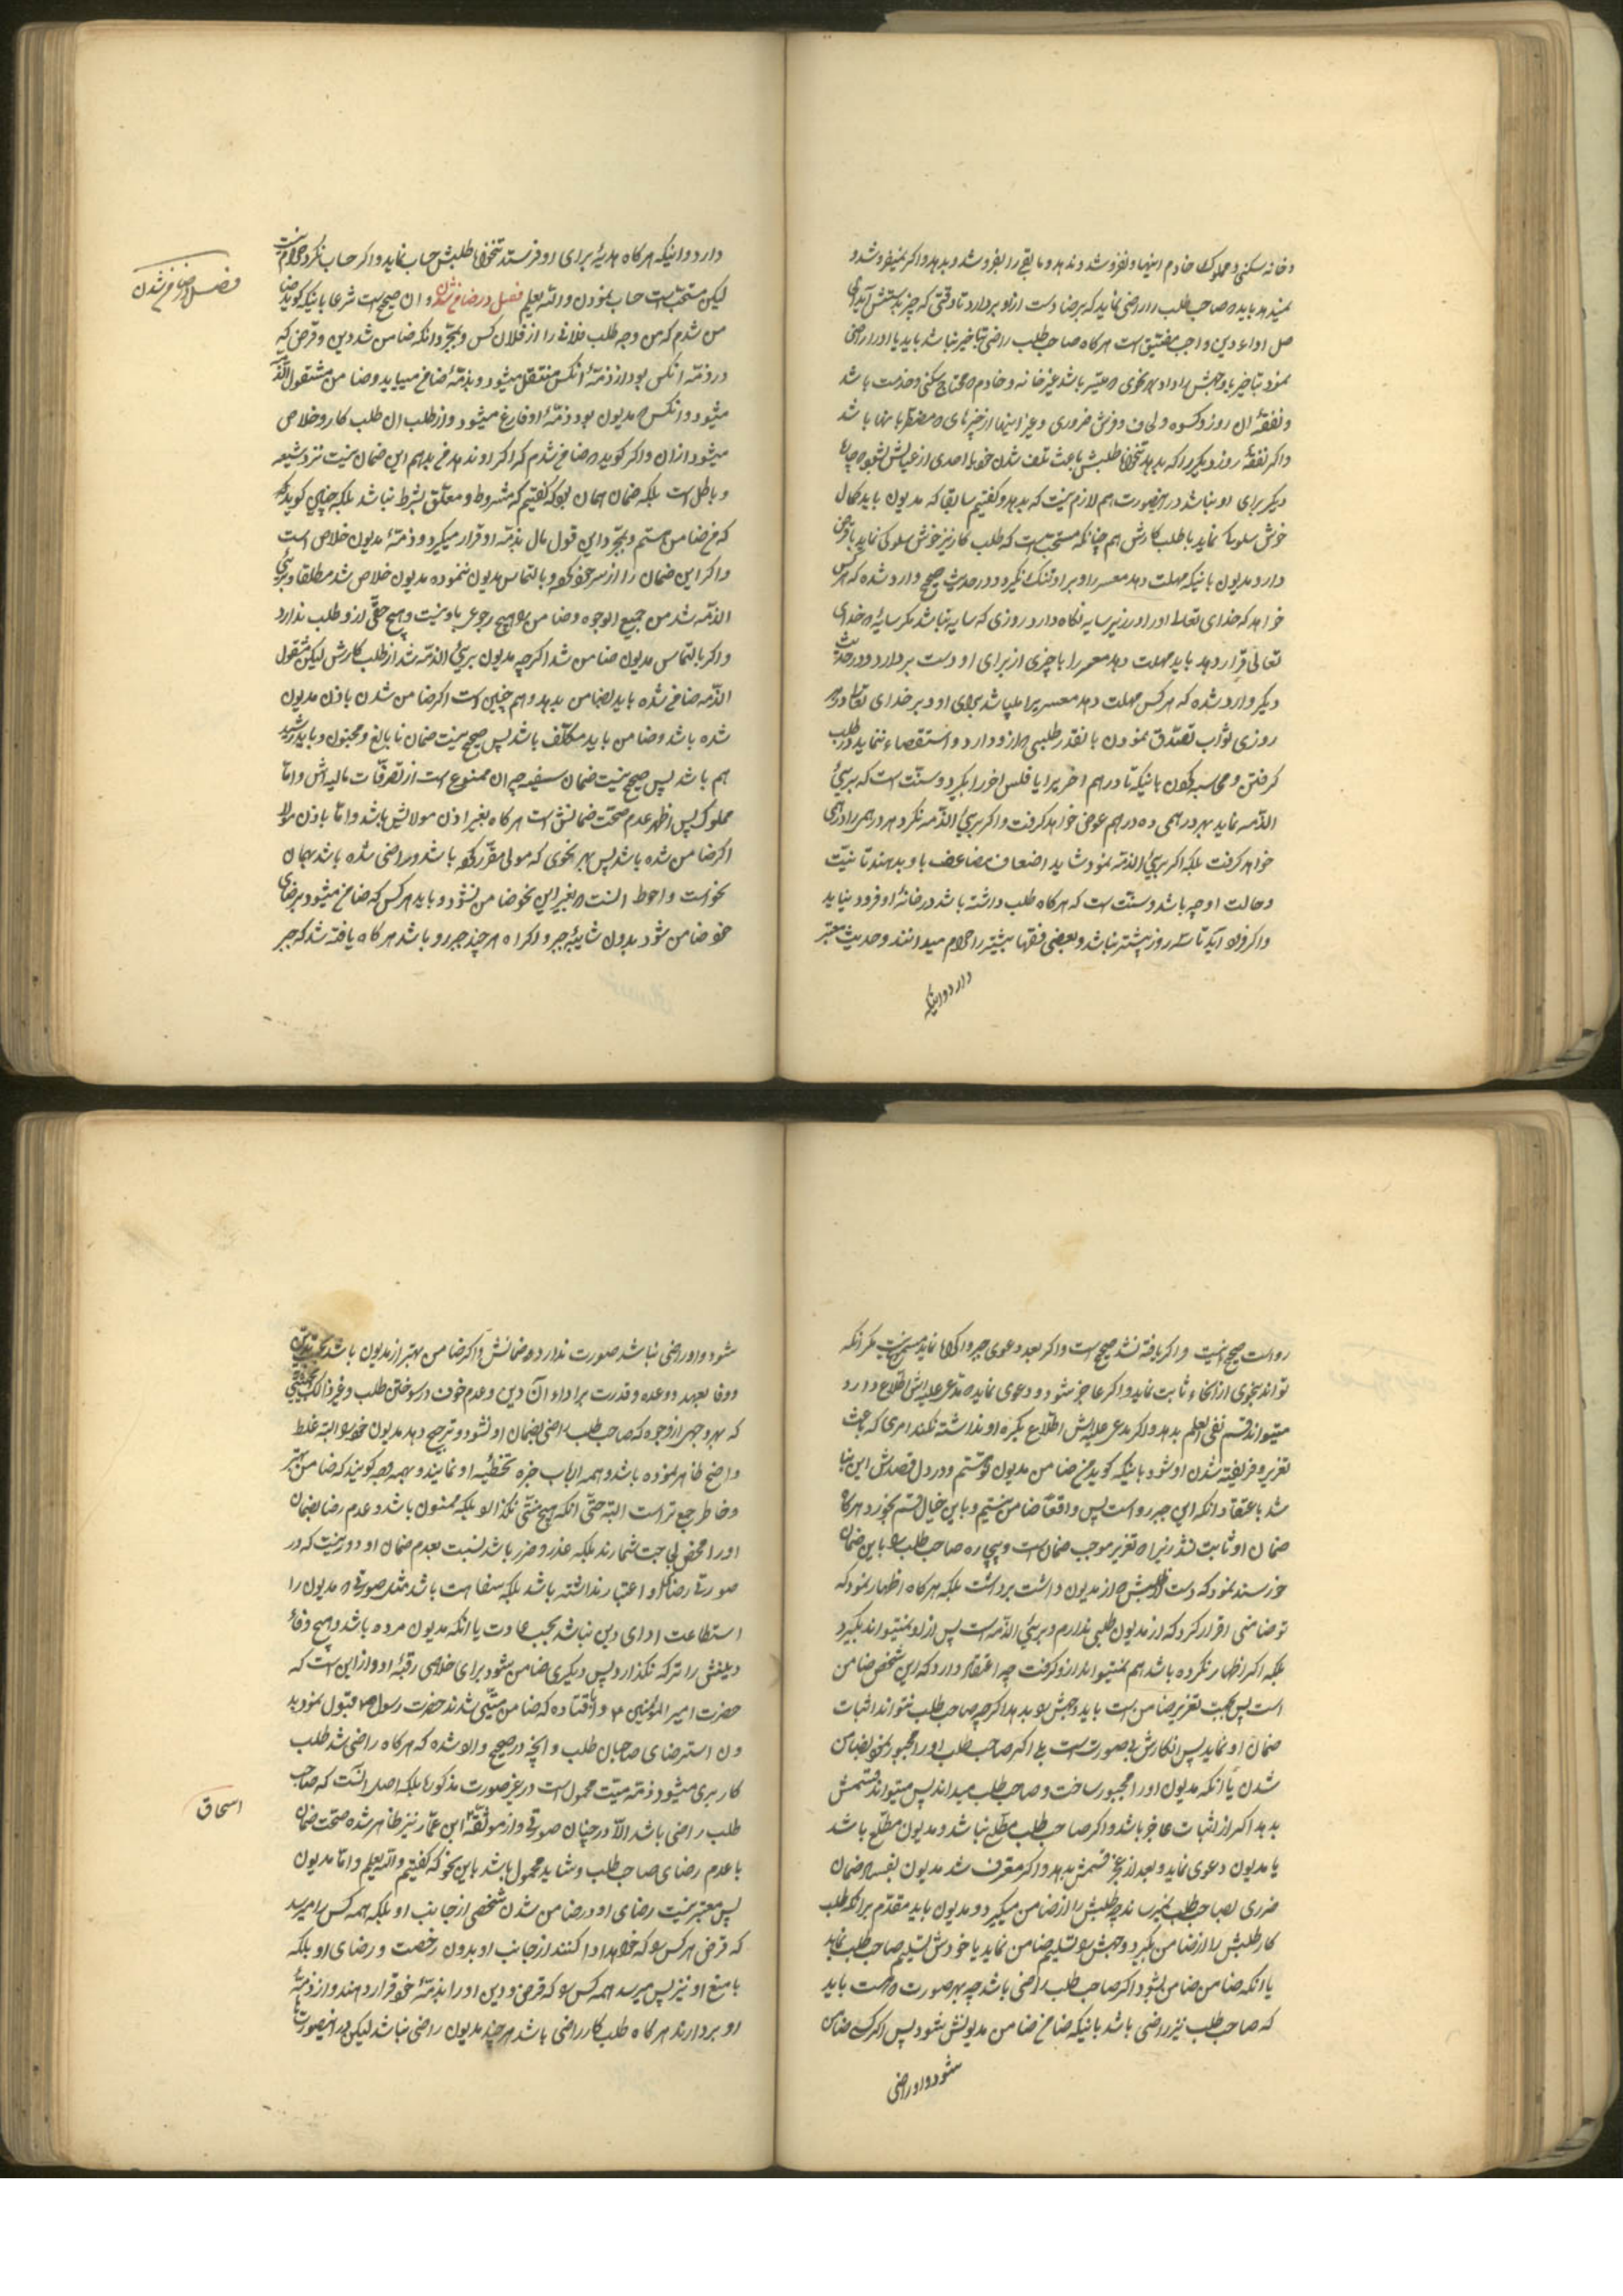 و خانه سکنی و مملوک خادم اینها و نفروشد و ندهد و مابقی را بفروشد و بدهد و اکر نمیفروشد و
نمیدهد باید صاحب طلب را راضی نماید که برضا دست ازاو بردارد تا وقتی که چیز بدستش آید
اداء دین واجب مضیق است هرکاه صاحب طلب راضی بتاخیر نباشد باید یا اورا راضی
نمود بتاخیر یا وجهش را داد بهر نحوی که میسر باشد غیر خانه و خادم محتاج سکنی و خدمت باشد
و نفقهٔ آن روز و کسوه و لحاف و فرش ضروری و غیر اینها از چیزهای که مضطر بآنها باشد
واکر نفقهٔ روز دیکر را که بدهد طلبش باعث تلف شدن خود یا احدی از عیالش بشود
دیکر برای او نباشد در اینصورت هم لازم نیست که بدهد و کفتیم سابقا که مدیون باید کمال
خوش سلوک نماید با طلب کارش هم چنانکه مستحب است که طلب کار نیز خوش سلوکی نماید با
دارد مدیون باینکه مهلت دهد معسر را و براو تنک نکیرد و در حدیث صحیح وارد شده که هرکس
خواهد که خدای تعالی اورا در زیر سایه نکاه دارد روزی که سایه نباشد مکر سایهٔ خدای
تعالی قرار دهد باید مهلت دهد معسر را یا چیزی از برای او دست بردارد و در حدیث
دیکر وارد شده که هرکس مهلت دهد معسریرا میباشد برای او در بر خدای تعالی در هر
روزی ثواب تصدق نمودن بانقدر طلبی که ازو دارد و استقصاء ننماید در طلب
کرفتن و محاسبه کردن باینکه تا درهم آخر یرا یا فلس آخر را بکیرد و سنت است که بریء
الذمه نماید بهر درهمی ده درهم عوض خواهد کرفت و اکر بریء الذمه نکرد هر درهم را درهمی
خواهد کرفت بلکه اکر بریء الذمه نمود شاید اضعاف مضاعف باو بدهند تا نیت
و حالت او چه باشد و سنت است که هرکاه طلب داشته باشد در خانهٔ او فرود نیاید
واکر فرود آید تا سه روز بیشتر نباشد و بعضی فقها بیشتر را حرام میدانند و حدیث معتبر
دارد و اینکه
دارد و اینکه هرکاه هدیهٔ برای او فرستد طلبش حساب نماید و اکر حساب نکرد حرام نیست
لیکن مستحب است حساب نمودن و الله یعلم فصل در ضامن شدن و ان صحیح است شرعا باینکه کوید
من شدم که من وجه طلب فلانی را از فلان کس و بمجرد انکه ضامن شد دین و قرضی که
در ذمه انکس بود از ذمهٔ انکس منتقل میشود و بذمهٔ ضامن میاید و ضامن مشتغول الذمه
میشود و انکس که مدیون بود ذمهٔ او فارغ میشود و از طلب ان طلب کار خلاص
میشود از ان و اکر کوید که ضامن شدم که اکر او ندهد من بدهم این ضمان نیست نزد شیعه
و باطل است بلکه ضمان همان بود که کفتیم که مشروط و معلق بشرط نباشد بلکه چنین کوید
که من ضامن هستم و بمجرد این قول مال بذمه او قرار میکیرد و ذمهٔ مدیون خلاص است
واکر این ضمان را از سر خود کرده و بالتماس مدیون ننموده مدیون خلاص شد مطلقا و بریء
الذمه شد من جمیع الوجوه و ضامن را هیچ رجوعی باو نیست و هیچ حقی ازو طلب ندارد
واکر بالتماس مدیون ضامن شد اکرچه مدیون بریء الذمه شد از طلب کارش لیکن مشغول
الذمه ضامن شده باید بضامن بدهد و هم چنین است اکر ضامن شدن باذن مدیون
شده باشد و ضامن باید مکلف باشد پس صحیح نیست ضمان نابالغ و مجنون و باید رشید
هم باشد پس صحیح نیست ضمان سفیه چه ان ممنوع است از تصرفات مالیه اش و اما
مملوک پس اظهر عدم صحت ضمانش است هرکاه بغیر اذن مولایش باشد و اما باذن مولا
اکر ضامن شده باشد پس بهر نحوی که مولی مقرر کرده باشد و راضی شده باشد بهمان
نحو است و احوط انست که بغیر این نحو ضامن نشود و باید هرکس که ضامن میشود برضای
خود ضامن شود بدون شایبهٔ جبر و اکراه هرچند جبر رو باشد هرکاه یافته شد که جبر
فصل در ضامن شدن
رو است صحیح نیست و اکر یافته نشد صحیح است و اکر بعد دعوی جبر و اکراه نماید مسموع نیست مکر انکه
تواند بنحوی از انحاء ثابت نماید و اکر عاجز شود و دعوی نماید که مدعی علیه اش اطلاع دارد
میتواند قسم نفی العلم بدهد و اکر مدعی علیه اش اطلاع بکره او نداشته لکن امری که باعث
تغریر و فریفته شدن او شود باینکه کوید من ضامن مدیون هستم و در دل قصدش این
شد باعتقاد انکه این جبر رو است پس واقعاً ضامن نیستم و باین خیال قسم بخورد هرکاه
ضمان او ثابت شد زیرا که تغریر موجب ضمان است و بیچاره صاحب طلب را باین ضمان
خورسند نمود که دست طلبش که از مدیون داشت برداشت بلکه هرکاه اظهار نمود که
تو ضامنی اقرار کرد که از مدیون طلبی ندارم و بریء الذمه است پس ازاو نمیتواند بکیرد
بلکه اکر اظهار نکرده باشد هم نمیتواند ازو کرفت چه اعتقاد دارد که این شخص ضامن
است پس بجهت تغریر ضامن است باید وجهش را بدهد اکرچه صاحب طلب نتواند اثبات
ضمان او نماید پس انکارش بی صورت است بلی اکر صاحب طلب اورا مجبور نمود بضامن
شدن یا انکه مدیون اورا مجبور ساخت و صاحب طلب میداند پس میتواند قسمش
بدهد اکر از اثبات عاجز باشد و اکر صاحب طلب مطلع نباشد و مدیون مطلع باشد
با مدیون دعوی نماید و بعد از عجز قسمش بدهد و اکر معترف شد مدیون بفساد ضمان
ضرری بصاحب طلب نمیرساند چه طلبش را از ضامن میکیرد و مدیون باید مقدم بر انکه طلب
کار طلبش را از ضامن بکیرد وجهش را تسلیم ضامن نماید یا خودش تسلیم صاحب طلب نماید
یا انکه ضامن ضامن بشود اکر صاحب طلب راضی باشد چه بهر صورت که هست باید
که صاحب طلب نیز راضی باشد باینکه ضامن ضامن مدیونش بشود پس اکر کسی ضامن
شود و او راضی
شود و او راضی نباشد صورت ندارد ضمانش و اکر ضامن بهتر از مدیون باشد بحسب تدین
و وفا بعهد و وعده و قدرت بر اداء آن دین و عدم خوف در سوختن طلب و غیر ذالک بحیثیتی
که بهر وجهی از وجوه که صاحب طلب راضی بضمان او نشود و ترجیح دهد مدیون خود را البته غلط
واضح ظاهر نموده باشد و همه ارباب خبره تخطئه او نمایند و همه کویند که ضامن بهتر
و خاطر جمع تر است البته حتی انکه هیچ منتی نکذارد بلکه ممنون باشد و عدم رضا بضمان
اورا محض لجاجت شمارند بلکه عذر و ضرر باشد نسبت بعدم ضمان او دور نیست که در
صورتی رضای او اعتبار نداشته باشد بلکه سفاهت باشد مثل صورتی که مدیون را
استطاعت ادای دین نباشد بحسب عادت یا انکه مدیون مرده باشد و هیچ وفاء
دینش را ترکه نکذارد پس دیکری ضامن شود برای خلاصی رقبهٔ او و از این است که
حضرت امیر المؤمنین ع و ابا قتاده که ضامن میتی شدند حضرت رسول ص قبول نمود بد
ون استرضای صاحبان طلب و انچه در صحیح وارد شده که هرکاه راضی شد طلب
کار بری میشود ذمه میت محمول است در غیر صورت مذکوره بلکه اصل انست که صاحب
طلب راضی باشد الا در چنان صورتی و از موثقهٔ ابن عمار نیز ظاهر شده صحت ضمان
با عدم رضای صاحب طلب و شاید محمول باشد باین نحو که کفتیم والله یعلم و اما مدیون
پس معتبر نیست رضای او در ضامن شدن شخصی از جانب او بلکه همه کس را میرسد
که قرض هرکس را که خواهد ادا کنند از جانب او بدون رخصت و رضای او بلکه
با منع او نیز پس میرسد همه کس را که قرض و دین اورا بذمهٔ خود قرار دهند و از ذمهٔ
او بردارند هرکاه طلب کار راضی باشد هرچند مدیون راضی نباشد لیکن در اینصورت
اسحاق